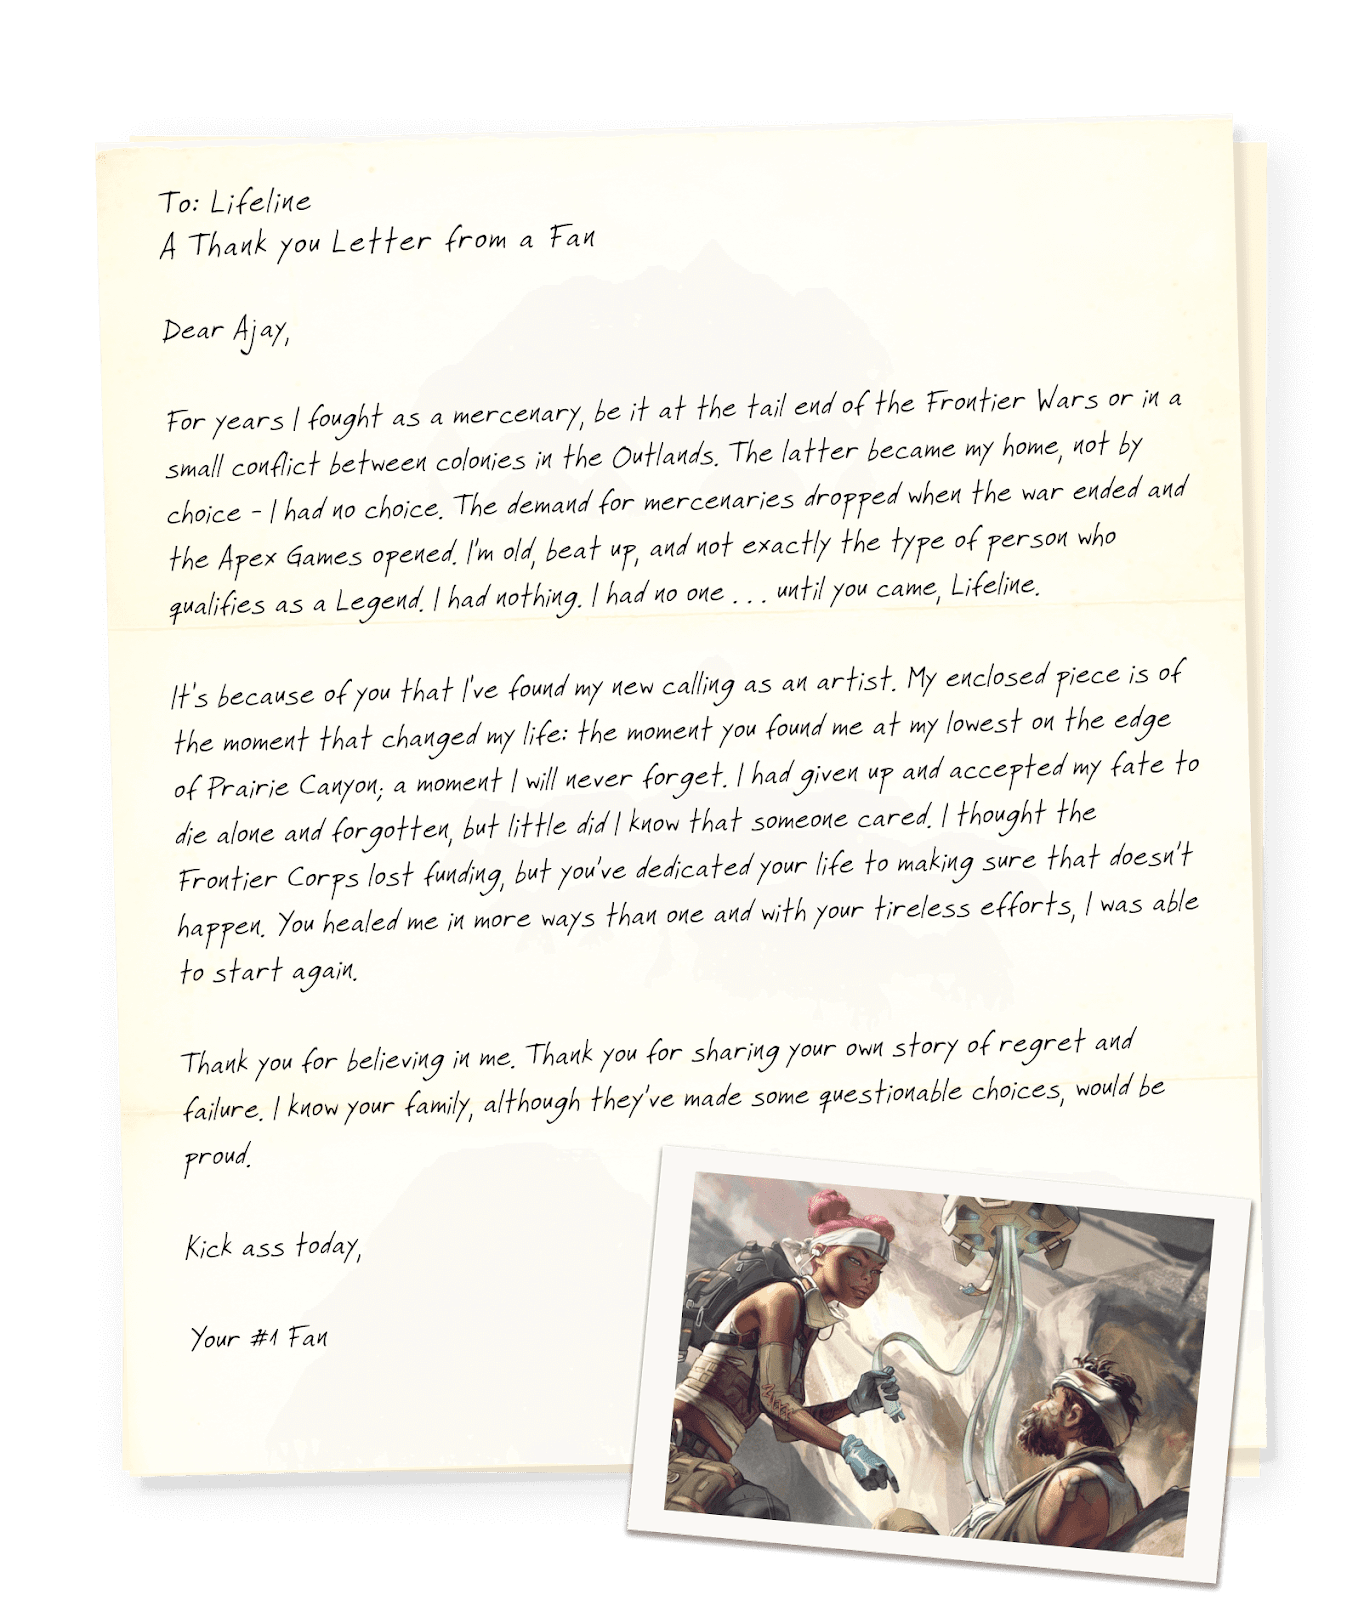 To: Lifeline
A Thank you Letter from a Fan
Dear Ajay,
For years I fought as a mercenary, be it at the tail end of the Frontier Wars or in a
small conflict between colonies in the Outlands. The latter became my home, not by
choice - I had no choice. The demand for mercenaries dropped when the war ended and
the Apex Games opened. I'm old, beat up, and not exactly the type of person who
qualifies as a Legend. I had nothing. I had no one . . . until you came, Lifeline.
It's because of you that I've found my new calling as an artist. My enclosed piece is of
the moment that changed my life: the moment you found me at my lowest on the edge
of Prairie Canyon; a moment I will never forget. I had given up and accepted my fate to
die alone and forgotten, but little did I know that someone cared. I thought the
Frontier Corps lost funding, but you've dedicated your life to making sure that doesn't
happen. You healed me in more ways than one and with your tireless efforts, I was able
to start again.
Thank you for believing in me. Thank you for sharing your own story of regret and
failure. I know your family, although they've made some questionable choices, would be
proud.
Kick ass today,
Your #1 Fan